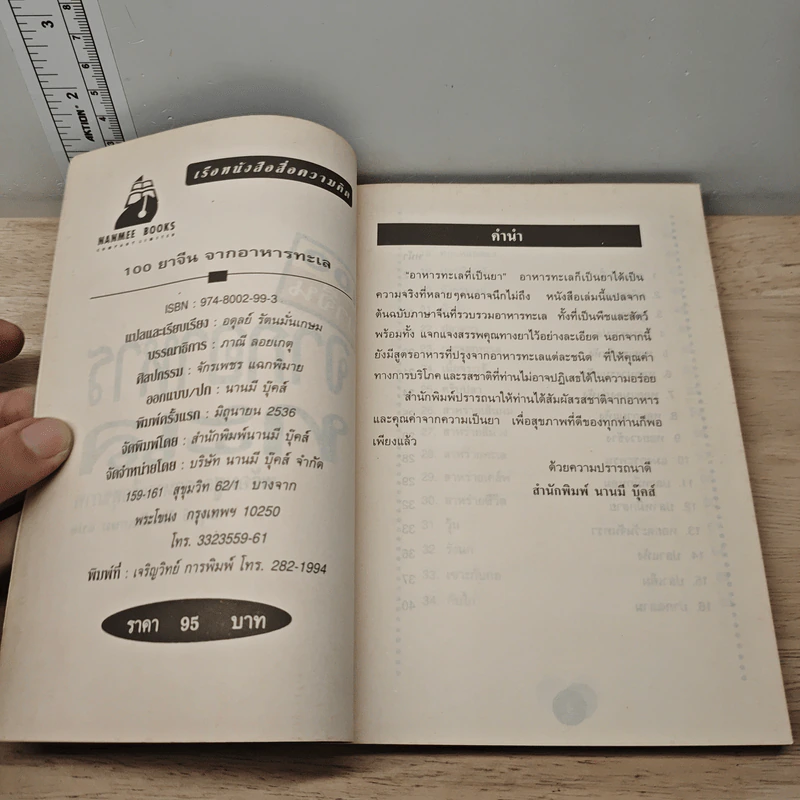 เรือหนังสือสื่อความคิด
NANMEE BOOKS
COMPANY LIMITED
100 ยาจีน จากอาหารทะเล
ISBN : 974-8002-99-3
แปลและเรียบเรียง : อดุลย์ รัตนมั่นเกษม
บรรณาธิการ : ภาณี ลอยเกตุ
ศิลปกรรม : จักรเพชร แฉกพิมาย
ออกแบบ/ปก : นานมี บุ๊คส์
พิมพ์ครั้งแรก : มิถุนายน 2536
จัดพิมพ์โดย : สำนักพิมพ์นานมี บุ๊คส์
จัดจำหน่ายโดย : บริษัท นานมี บุ๊คส์ จำกัด
159-161 สุขุมวิท 62/1 บางจาก
พระโขนง กรุงเทพฯ 10250
โทร. 3323559-61
พิมพ์ที่ : เจริญวิทย์ การพิมพ์ โทร. 282-1994
ราคา 95 บาท
คำนำ
"อาหารทะเลที่เป็นยา" อาหารทะเลก็เป็นยาได้เป็น
ความจริงที่หลายๆคนอาจนึกไม่ถึง หนังสือเล่มนี้แปลจาก
ต้นฉบับภาษาจีนที่รวบรวมอาหารทะเล ทั้งที่เป็นพืชและสัตว์
พร้อมทั้ง แจกแจงสรรพคุณทางยาไว้อย่างละเอียด นอกจากนี้
ยังมีสูตรอาหารที่ปรุงจากอาหารทะเลแต่ละชนิด ที่ให้คุณค่า
ทางการบริโภคและรสชาติที่ท่านไม่อาจปฏิเสธได้ในความอร่อย
สำนักพิมพ์ปรารถนาให้ท่านได้สัมผัสรสชาติจากอาหาร
และคุณค่าจากความเป็นยา เพื่อสุขภาพที่ดีของทุกท่านก็พอ
เพียงแล้ว
ด้วยความปรารถนาดี
สำนักพิมพ์ นานมี บุ๊คส์
AKTION
2
3
5
6
7
8